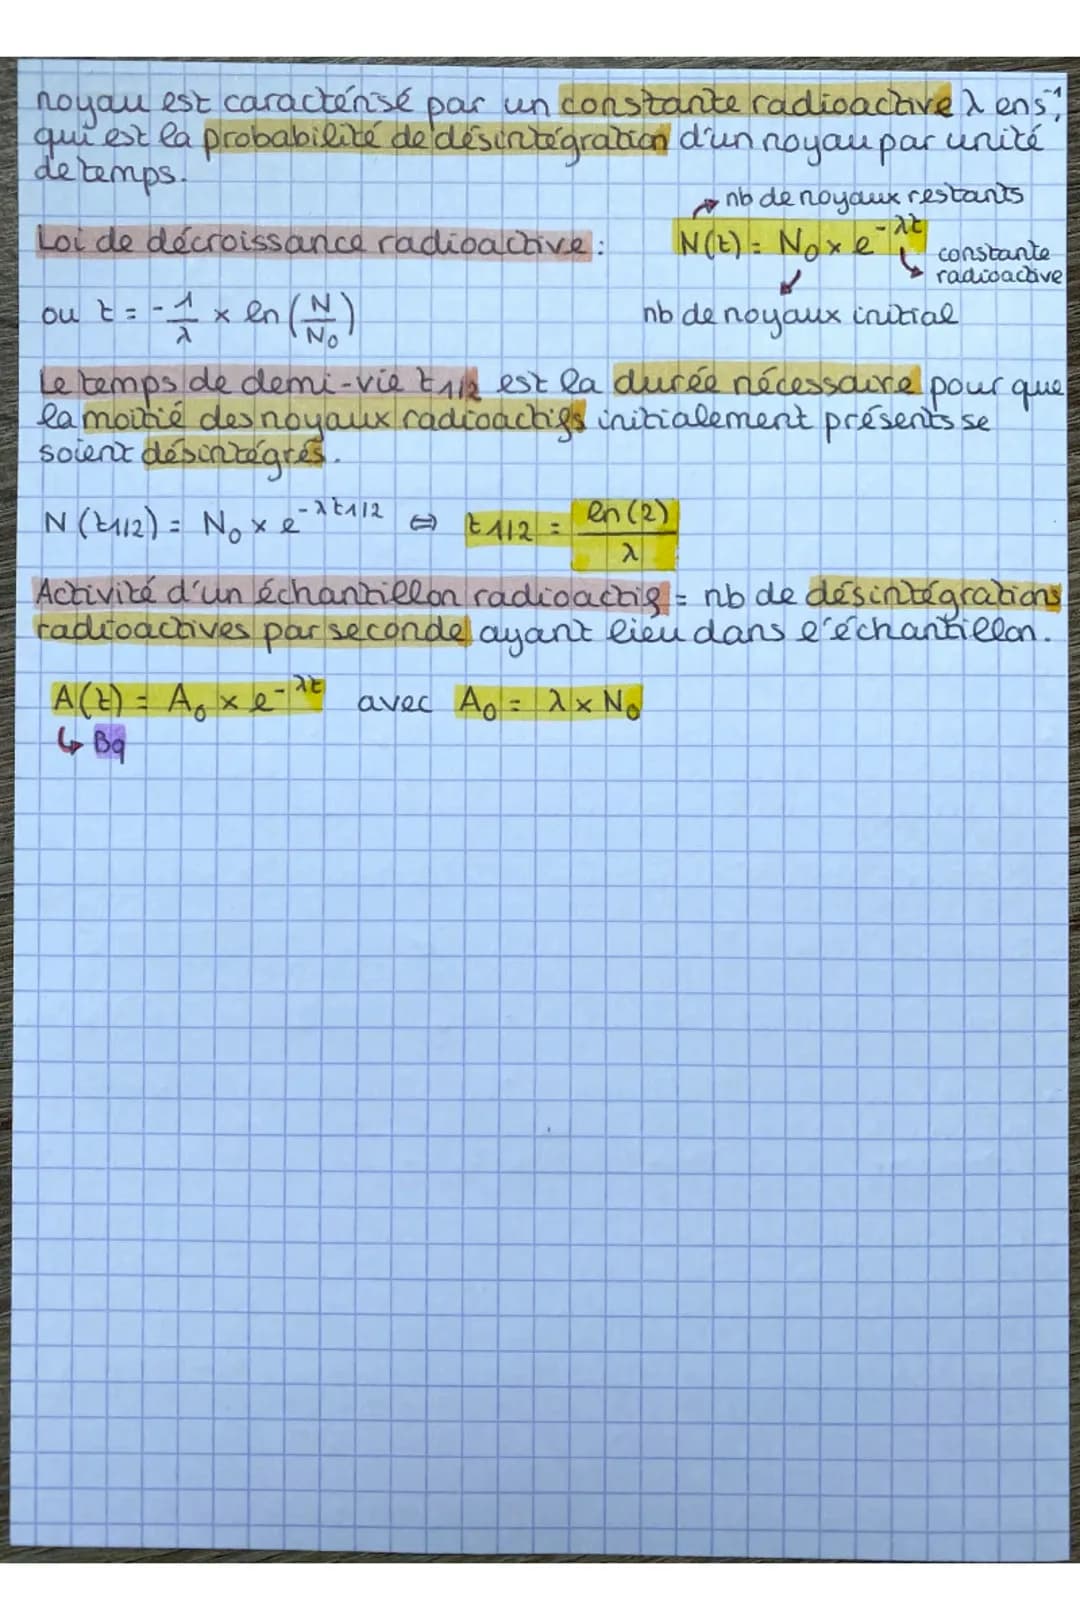 noyau est caractérisé par un constante radioactive λ en s⁻¹,
qui est la probabilité de désintégration d'un noyau par unité
de temps.
nb de noyaux restants
Loi de décroissance radioactive : N(t) = N₀ × e^-λt
constante
radioactive
ou t = -1/λ × ln(N/N₀)
nb de noyaux initial
Le temps de demi-vie t1/2 est la durée nécessaire pour que
la moitié des noyaux radioactifs initialement présents se
soient désintégrés.
N(t1/2) = N₀ × e^-λt1/2 ⇔ t1/2 = ln(2)/λ
Activité d'un échantillon radioactif = nb de désintégrations
radioactives par seconde ayant lieu dans l'échantillon.
A(t) = A₀ × e^-λt avec A₀ = λ × N₀
↳ Bq